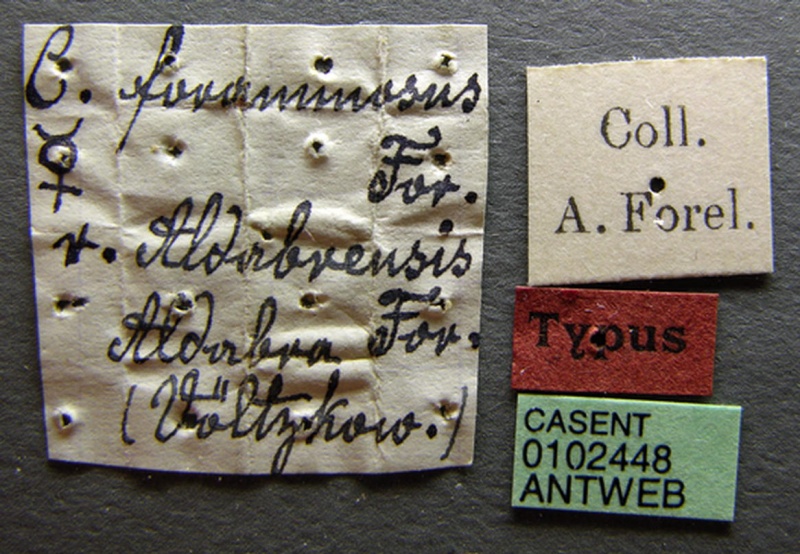 C. foraminosus
☿ For.
r. Aldabrensis
Aldabra For.
(Völtzkow.)
Coll.
A. Forel.
Typus
CASENT
0102448
ANTWEB